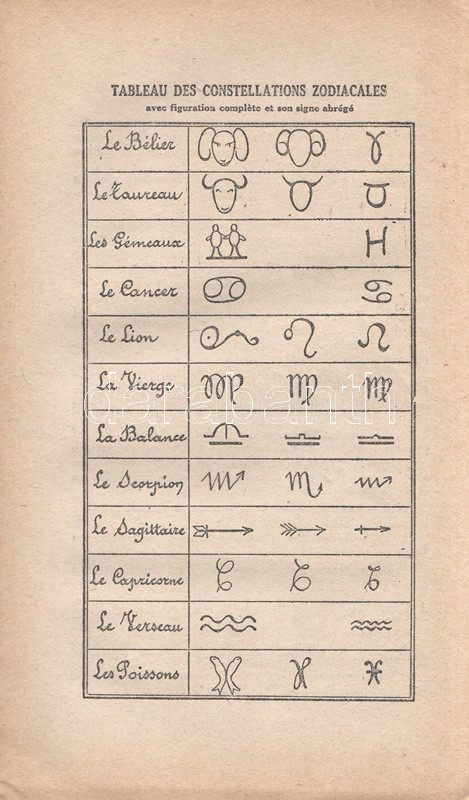 TABLEAU DES CONSTELLATIONS ZODIACALES
avec figuration complète et son signe abrégé
Le Bélier
Le Taureau
Les Gémeaux
Le Cancer
Le Lion
La Vierge
darabanth
La Balance
Le Scorpion
Le Sagittaire
Le Capricorne
Le Verseau
Les Poissons